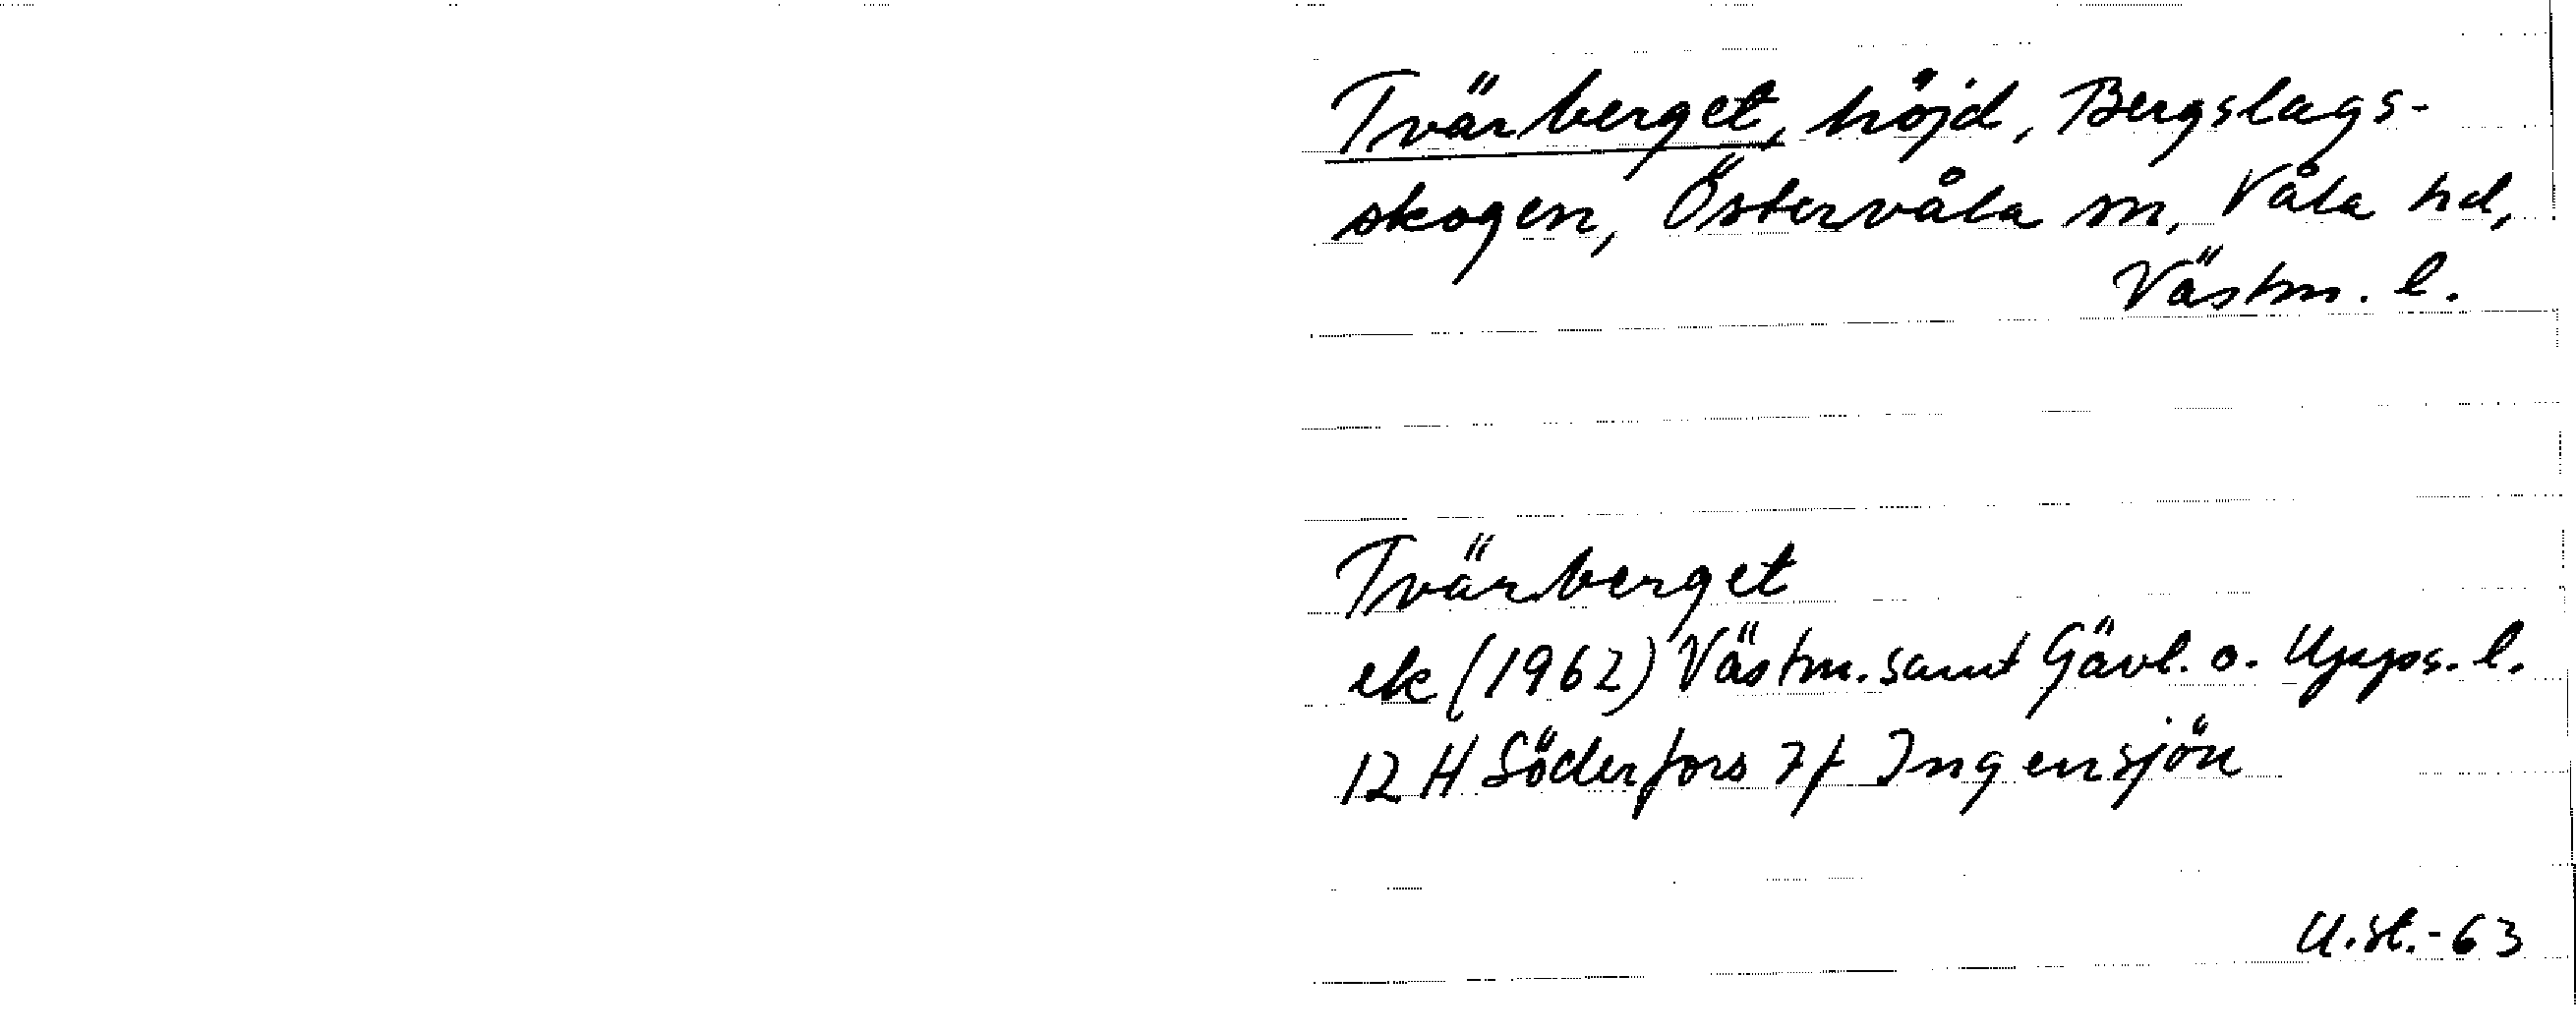 Tvärberget, höjd, Bergslags-
skogen, Östervåla sn, Våla hd,
Västm. l.
Tvärberget
ek (1962) Västm. samt Gävl. o. Upps. l.
12 H Söderfors 7f Ingensjön
U.st.-63